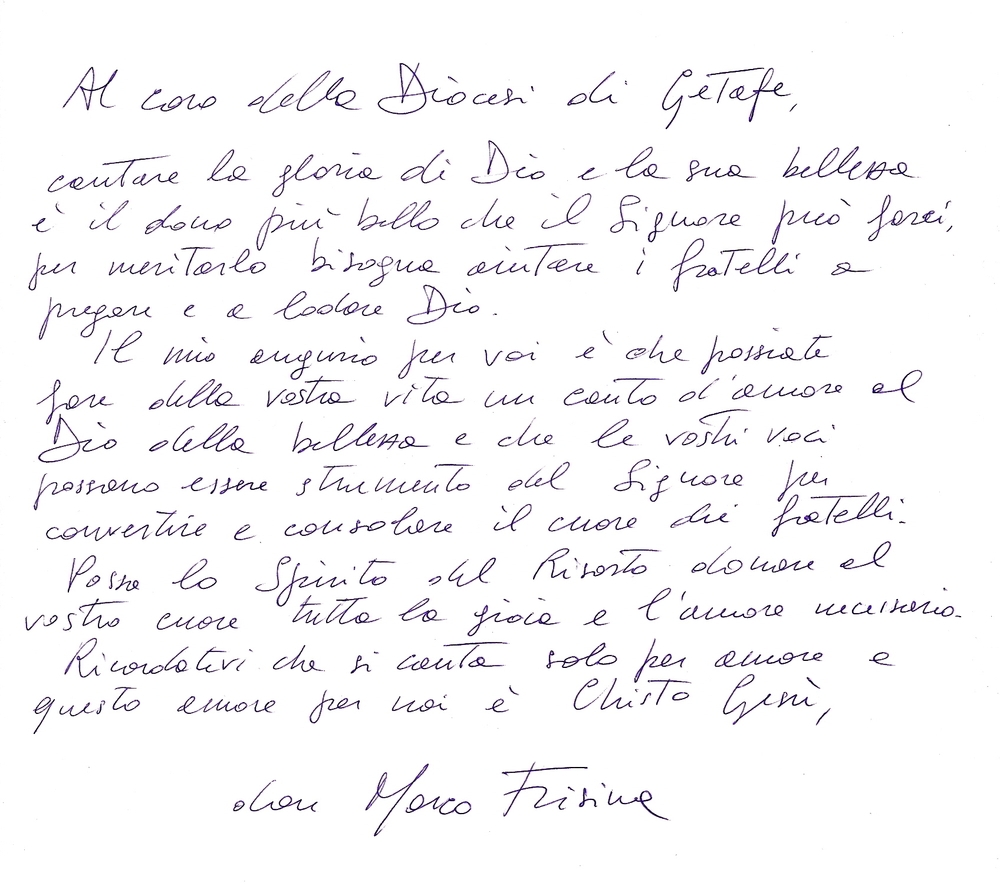 Al coro della Diocesi di Getafe,
cantare la gloria di Dio e la sua bellezza
è il dono più bello che il Signore può farci,
per meritarlo bisogna aiutare i fratelli a
pregare e a lodare Dio.
Il mio augurio per voi è che possiate
fare della vostra vita un canto d'amore al
Dio della bellezza e che le vostri voci
possano essere strumento del Signore per
convertire e consolare il cuore dei fratelli.
Possa lo Spirito del Risorto donare al
vostro cuore tutta la gioia e l'amore necessario.
Ricordatevi che si canta solo per amore e
questo amore per noi è Christo Gesù,
don Marco Frisina